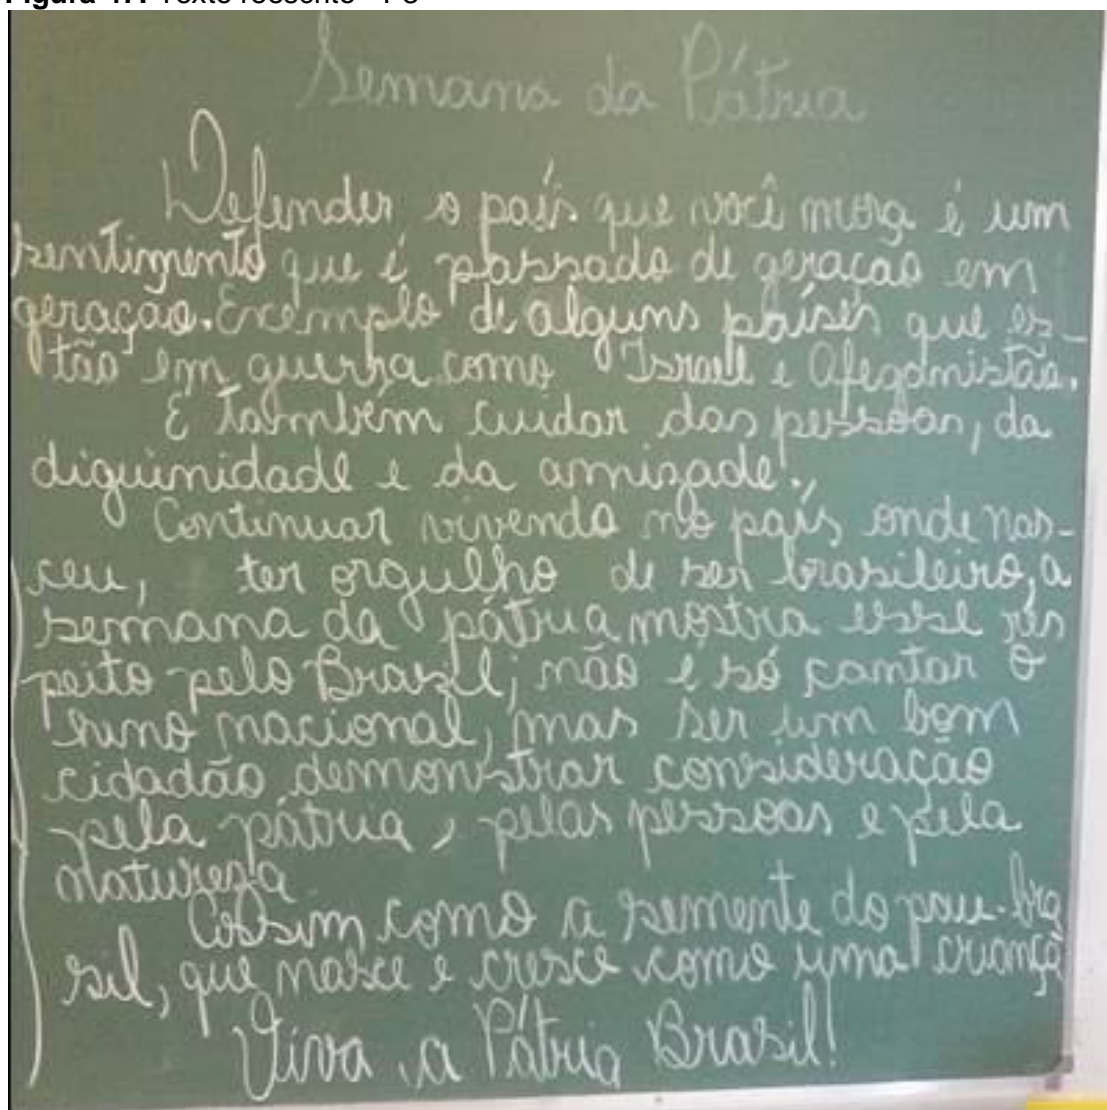 Semana da Pátria
Defender o país que você mora é um
sentimento que é passado de geração em
geração. Exemplo de alguns países que es-
tão em guerra como Israel e Afeganistão.
É também cuidar das pessoas, da
diguinidade e da amizade.
Continuar vivendo no país onde nas-
ceu, ter orgulho de ser brasileiro, a
semana da pátria mostra esse res
peito pelo Brasil; não é só cantar o
hino nacional, mas ser um bom
cidadão, demonstrar consideração
pela pátria, pelas pessoas e pela
natureza.
Assim como a semente do pau-bra
sil, que nasce e cresce como uma criança
Viva, a Pátria Brasil!